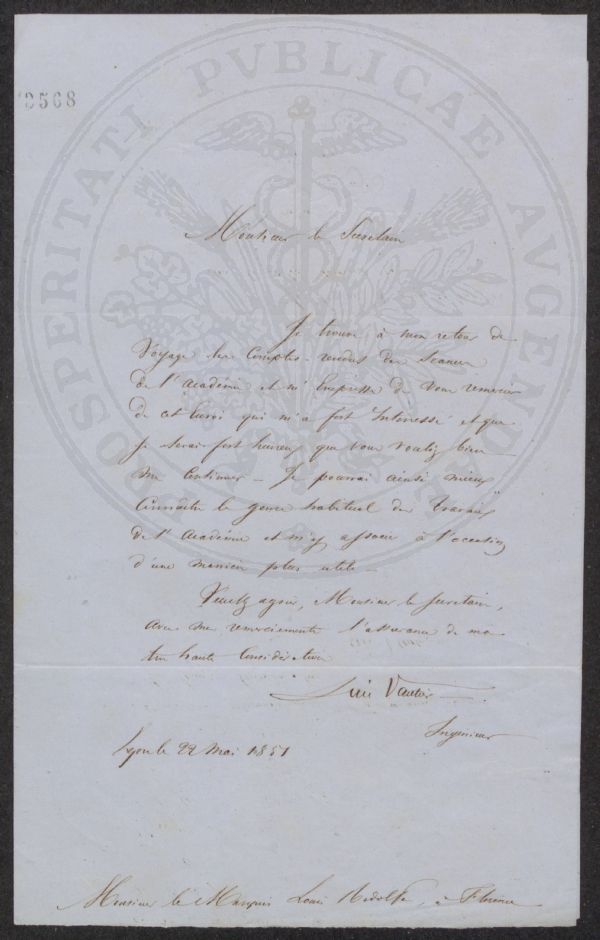 2568
PROSPERITATI PVBLICAE AVGENDAE
Monsieur le Secretaire
Je trouve à mon retour de
Voyage les Comptes-rendus des Seances
de l'Académie et m'empresse de vous remercier
de cet Envoi qui m'a fort Interessé et que
je serai fort heureux que vous vouliez bien
me Continuer _ Je pourrai ainsi mieux
Connaître le genre habituel des Travaux
de l'Académie et m'y associer à l'occasion
d'une manière plus utile _
Veuillez agréer, Monsieur le Secretaire,
avec mes remerciements l'assurance de ma
très haute Considération
Vautier
Ingénieur
Lyon le 22 Mai 1851
Monsieur le Marquis Louis Ridolfi, à Florence